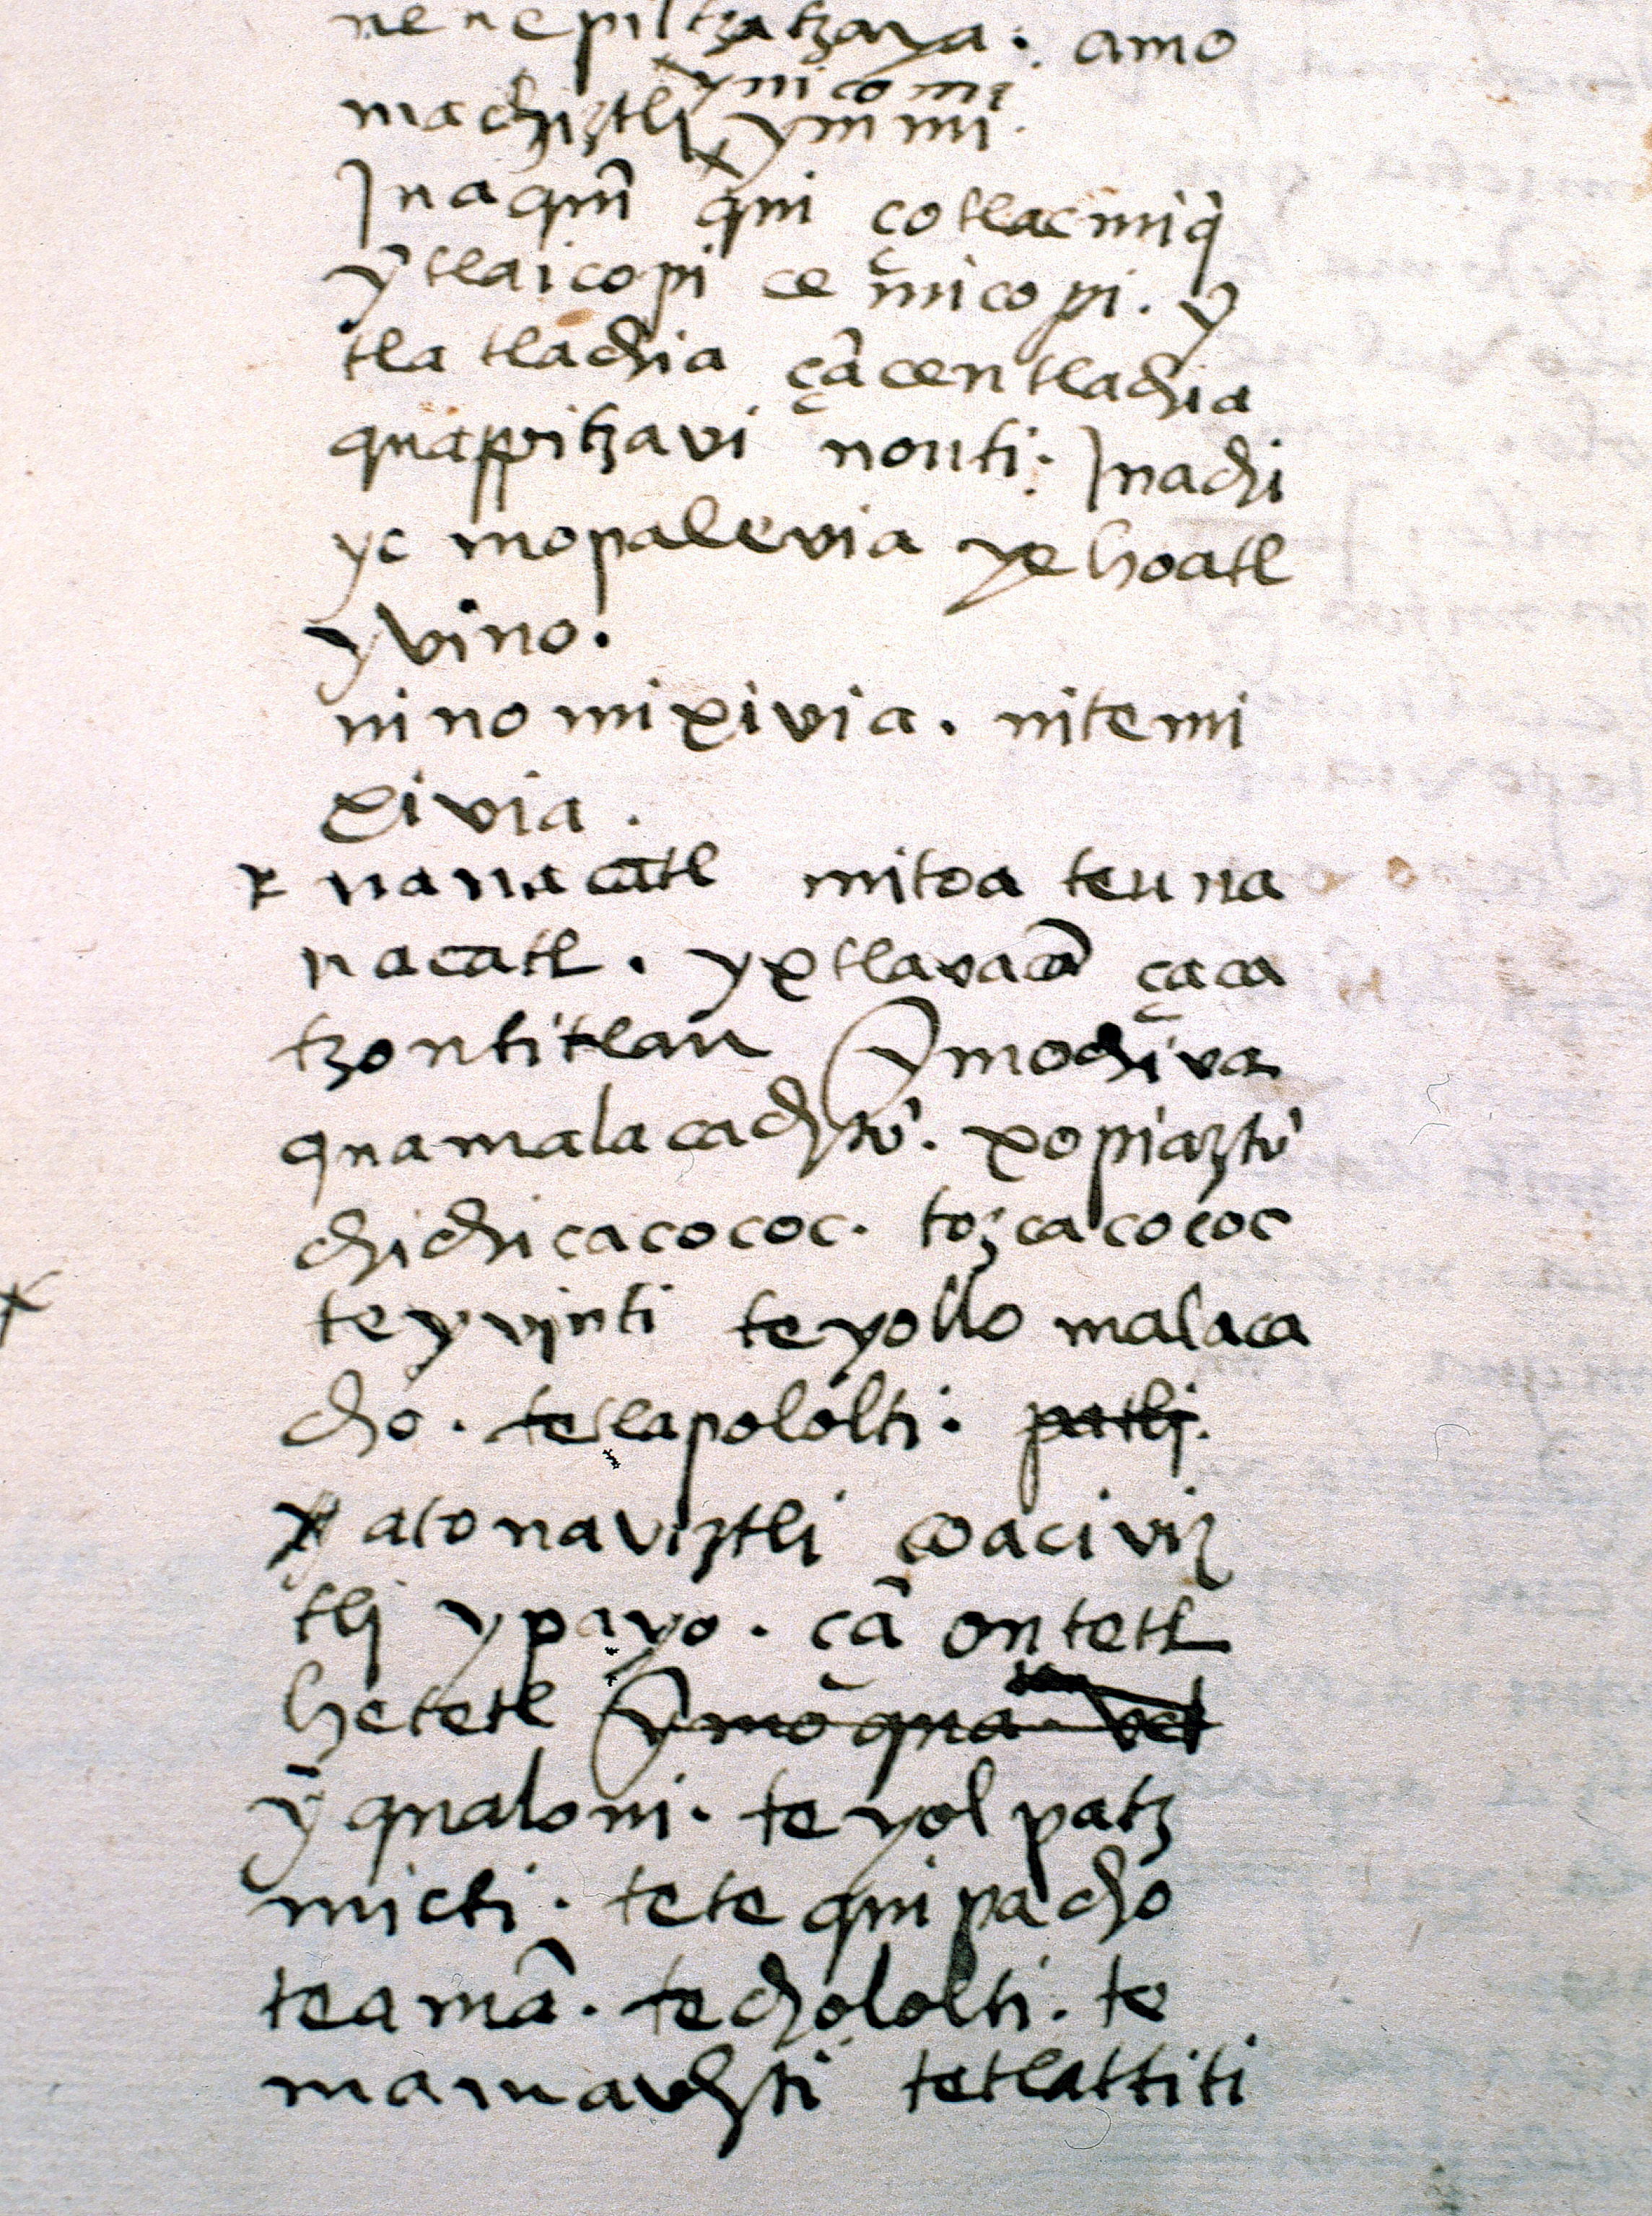 nenepiltzatzaya. amo
ynicomi
machiztli ymmi.
Jnaqui͂ qui çotlacmiq̇
y͂tlaicopi ce mi͂copi. y
tla tlachia ça͂centlachia
quappitzavi nonti. Jnachi
yc mopalevia yehoatl
yvino.
ninomixivia. nitemi
xivia.
nanacatl mitoa teuna
nacatl. yxtlavaca͂ çaca
tzontitlan y͂mochiva
quamalacachtṅ. xopiaztṅ
chichicacococ. tozcacococ
teyvinti teyollo malaca
cho. tetlapololti. patlj.
atonaviztli coaciviz
tlj ypayo. ça͂ ontetl
hetetl y͂moqua
y͂qualoni. teyolpatz
micti. tetequipacho
teama͂. techololti. te
mamauhti tetlattiti